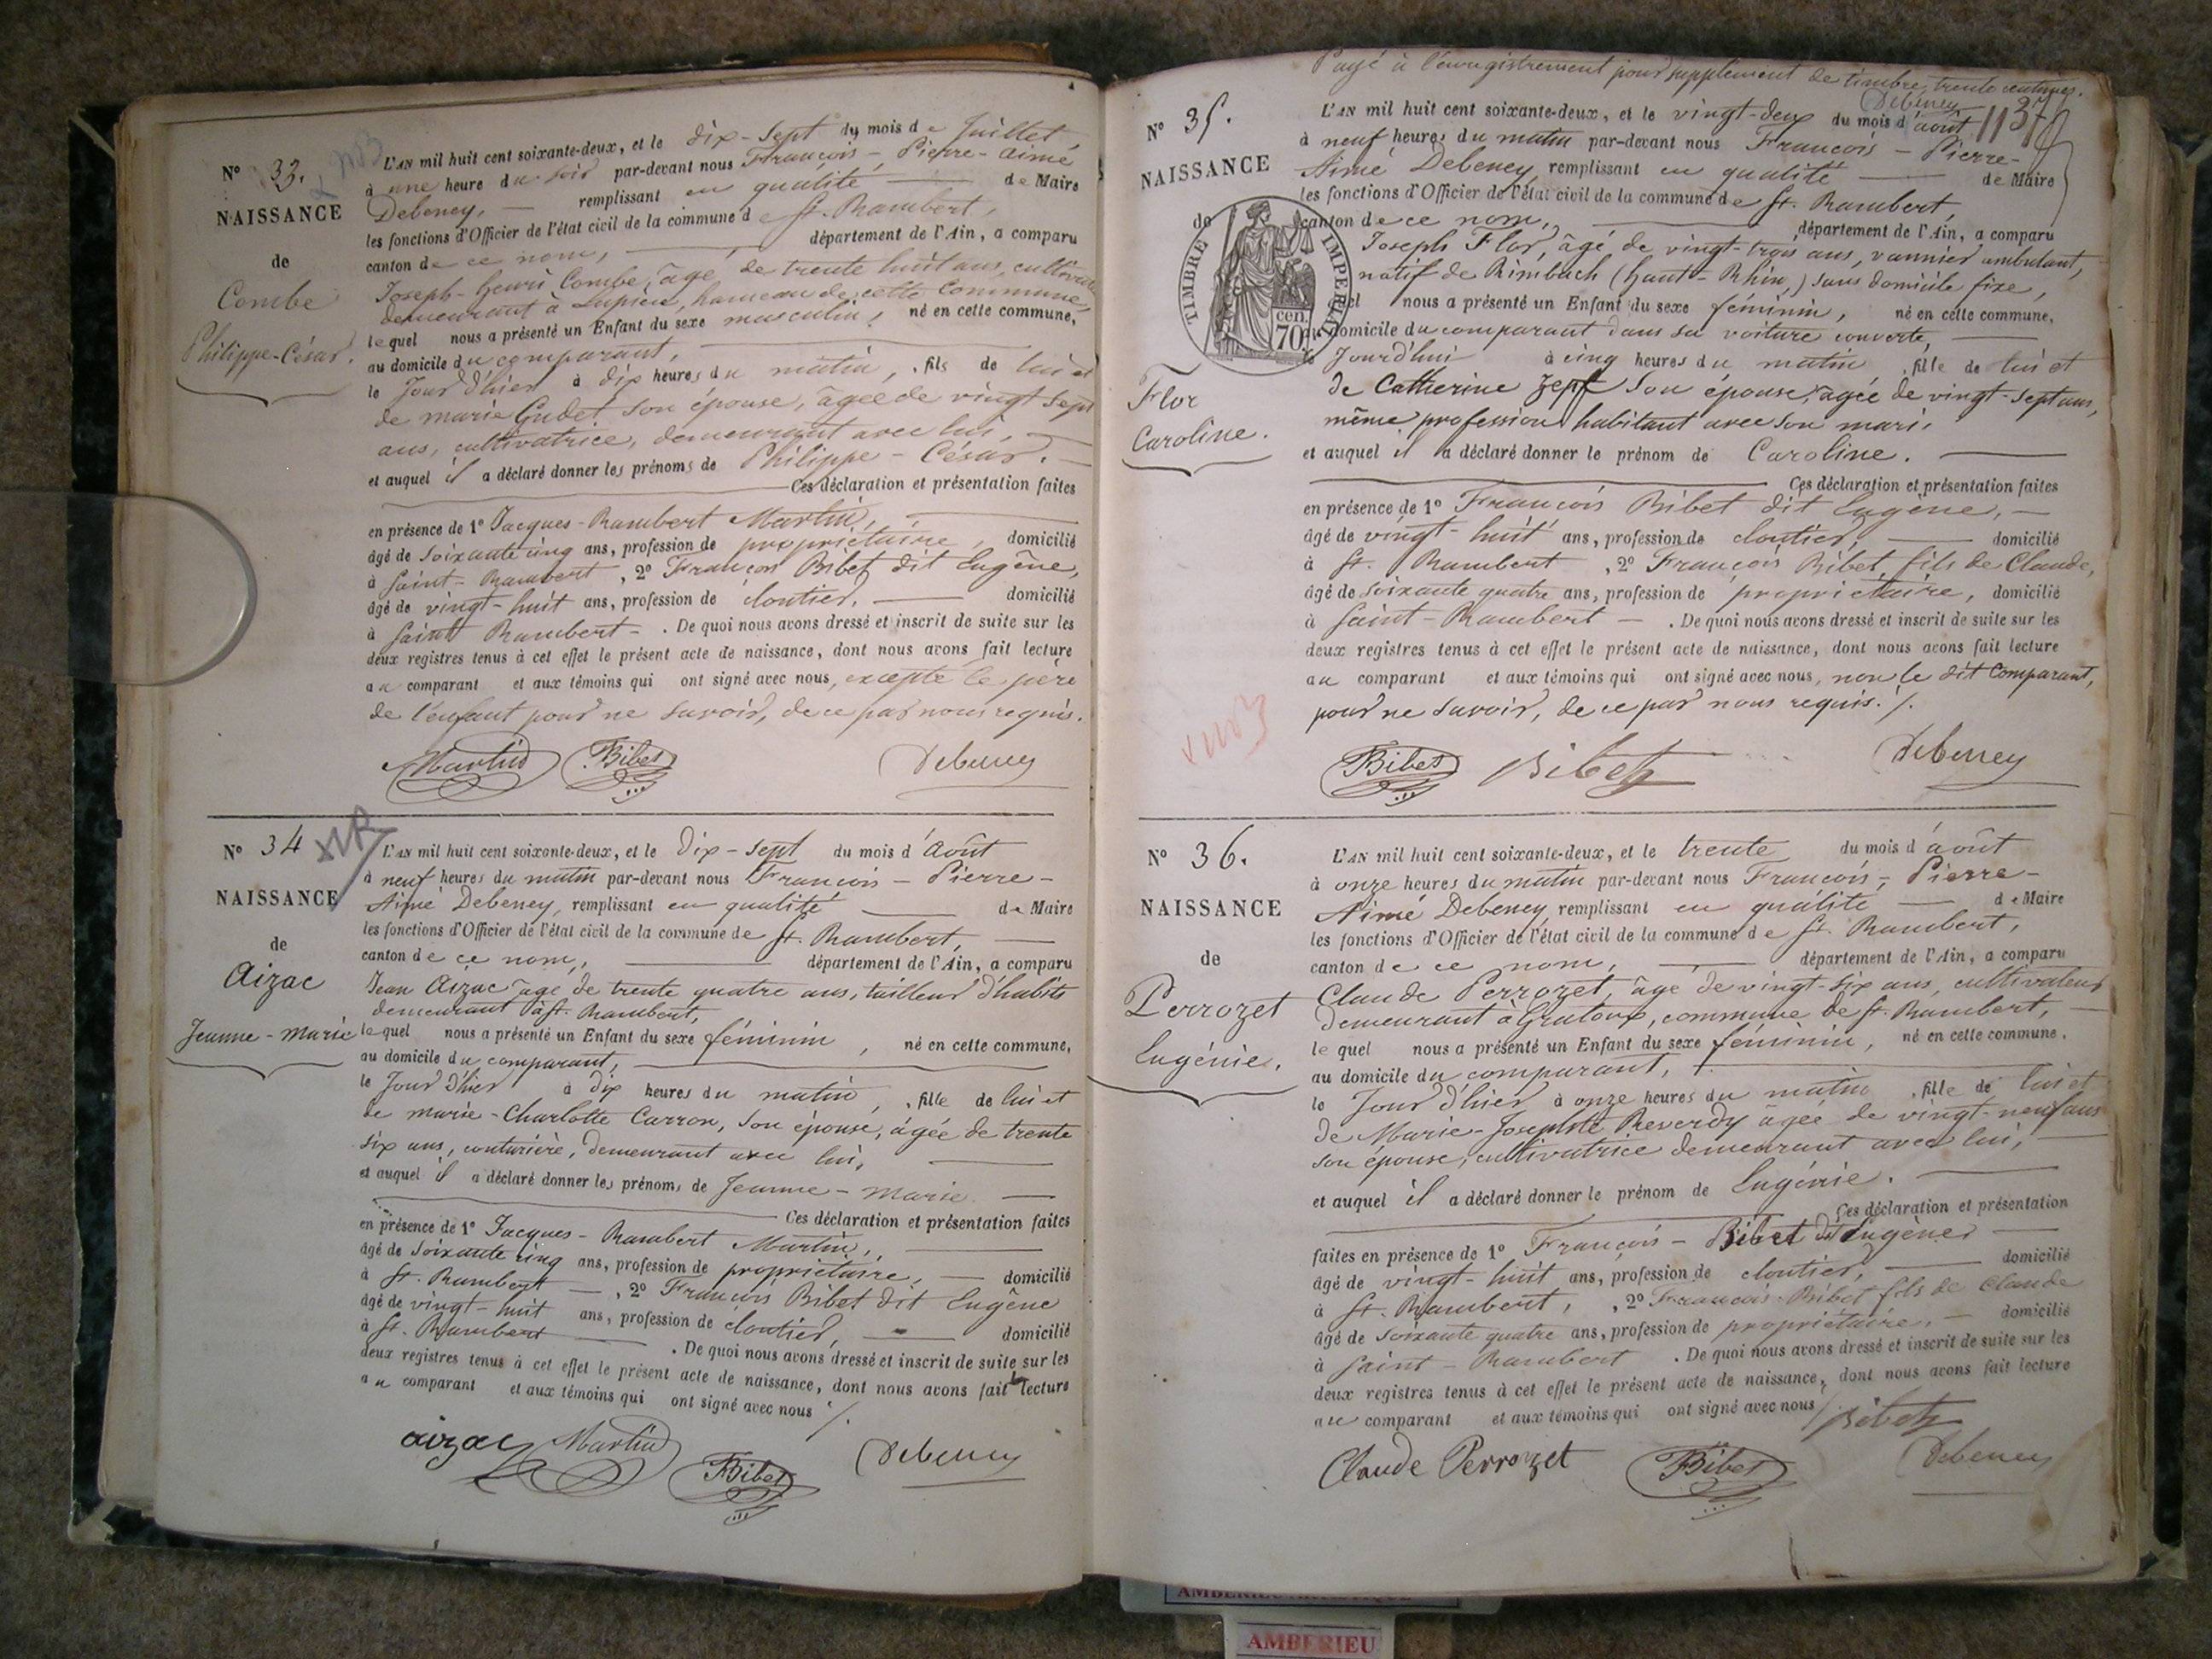 N° 33.
NAISSANCE
de
Combe
Philippe-César.
L'AN mil huit cent soixante-deux, et le dix-sept du mois de Juillet
à une heure du soir par-devant nous François-Pierre-Aimé
Debeney, remplissant en qualité de Maire
les fonctions d'Officier de l'état civil de la commune de St. Rambert,
canton de ce nom, département de l'Ain, a comparu
Joseph-henri Combe, âgé de trente huit ans, cultivateur
demeurant à Lupieu, hameau de cette Commune,
lequel nous a présenté un Enfant du sexe masculin, né en cette commune,
au domicile du comparant,
le Jour d'hier à dix heures du matin, fils de lui et
de marie Gudet son épouse, âgée de vingt sept
ans, cultivatrice, demeurant avec lui,
et auquel il a déclaré donner les prénoms de Philippe-César.
Ces déclaration et présentation faites
en présence de 1° Jacques-Rambert Martin,
âgé de soixante cinq ans, profession de propriétaire, domicilié
à Saint-Rambert, 2° François Bibet dit Eugène,
âgé de vingt-huit ans, profession de cloutier, domicilié
à Saint Rambert. De quoi nous avons dressé et inscrit de suite sur les
deux registres tenus à cet effet le présent acte de naissance, dont nous avons fait lecture
au comparant et aux témoins qui ont signé avec nous, excepté le père
de l'enfant pour ne savoir, de ce par nous requis.
Martin Bibet Debeney
N° 34
NAISSANCE
de
Aizac
Jeanne-marie
L'AN mil huit cent soixante-deux, et le dix-sept du mois d'août
à neuf heures du matin par-devant nous François-Pierre-
Aimé Debeney, remplissant en qualité de Maire
les fonctions d'Officier de l'état civil de la commune de St. Rambert,
canton de ce nom, département de l'Ain, a comparu
Jean Aizac âgé de trente quatre ans, tailleur d'habits
demeurant à St. Rambert,
lequel nous a présenté un Enfant du sexe féminin, né en cette commune,
au domicile du comparant,
le Jour d'hier à dix heures du matin, fille de lui et
de marie-Charlotte Carron, son épouse, âgée de trente
six ans, couturière, demeurant avec lui,
et auquel il a déclaré donner les prénoms de Jeanne-marie
Ces déclaration et présentation faites
en présence de 1° Jacques-Rambert Martin,
âgé de soixante cinq ans, profession de propriétaire, domicilié
à St. Rambert, 2° François Bibet dit Eugène
âgé de vingt-huit ans, profession de cloutier, domicilié
à St. Rambert. De quoi nous avons dressé et inscrit de suite sur les
deux registres tenus à cet effet le présent acte de naissance, dont nous avons fait lecture
au comparant et aux témoins qui ont signé avec nous
aizac Martin Bibet Debeney
Payé à l'enregistrement pour supplément de timbre, trente centimes.
Debeney
N° 35.
NAISSANCE
de
TIMBRE IMPERIAL
70 cen
Flor
Caroline.
L'AN mil huit cent soixante-deux, et le vingt-deux du mois d'août
à neuf heures du matin par-devant nous François-Pierre-
Aimé Debeney, remplissant en qualité de Maire
les fonctions d'Officier de l'état civil de la commune de St. Rambert,
canton de ce nom, département de l'Ain, a comparu
Joseph Flor, âgé de vingt-trois ans, vannier ambulant,
natif de Rimbach (haut-Rhin,) sans domicile fixe,
quel nous a présenté un Enfant du sexe féminin, né en cette commune,
au domicile du comparant dans sa voiture couverte,
le Jourd'hui à cinq heures du matin, fille de lui et
de Catherine Zepf son épouse, âgée de vingt-sept ans,
même profession habitant avec son mari,
et auquel il a déclaré donner le prénom de Caroline.
Ces déclaration et présentation faites
en présence de 1° François Bibet dit Eugène,
âgé de vingt-huit ans, profession de cloutier, domicilié
à St. Rambert, 2° François Bibet, fils de Claude,
âgé de soixante quatre ans, profession de propriétaire, domicilié
à Saint-Rambert. De quoi nous avons dressé et inscrit de suite sur les
deux registres tenus à cet effet le présent acte de naissance, dont nous avons fait lecture
au comparant et aux témoins qui ont signé avec nous, non le dit Comparant,
pour ne savoir, de ce par nous requis.
Bibet Bibet Debeney
N° 36.
NAISSANCE
de
Perrozet
Eugénie.
L'AN mil huit cent soixante-deux, et le trente du mois d'août
à onze heures du matin par-devant nous François-Pierre-
Aimé Debeney, remplissant en qualité de Maire
les fonctions d'Officier de l'état civil de la commune de St. Rambert,
canton de ce nom, département de l'Ain, a comparu
Claude Perrozet âgé de vingt-six ans, cultivateur
demeurant à Gratoux, commune de St. Rambert,
lequel nous a présenté un Enfant du sexe féminin, né en cette commune.
au domicile du comparant,
le Jour d'hier à onze heures du matin, fille de lui et
de Marie-Josephte Reverdy âgée de vingt-neuf ans
son épouse, cultivatrice demeurant avec lui,
et auquel il a déclaré donner le prénom de Eugénie.
Ces déclaration et présentation
faites en présence de 1° François-Bibet dit Eugène
âgé de vingt-huit ans, profession de cloutier, domicilié
à St. Rambert, 2° François Bibet fils de Claude
âgé de soixante quatre ans, profession de propriétaire, domicilié
à Saint-Rambert. De quoi nous avons dressé et inscrit de suite sur les
deux registres tenus à cet effet le présent acte de naissance, dont nous avons fait lecture
au comparant et aux témoins qui ont signé avec nous
Bibet
Claude Perrozet Bibet Debeney
AMBERIEU